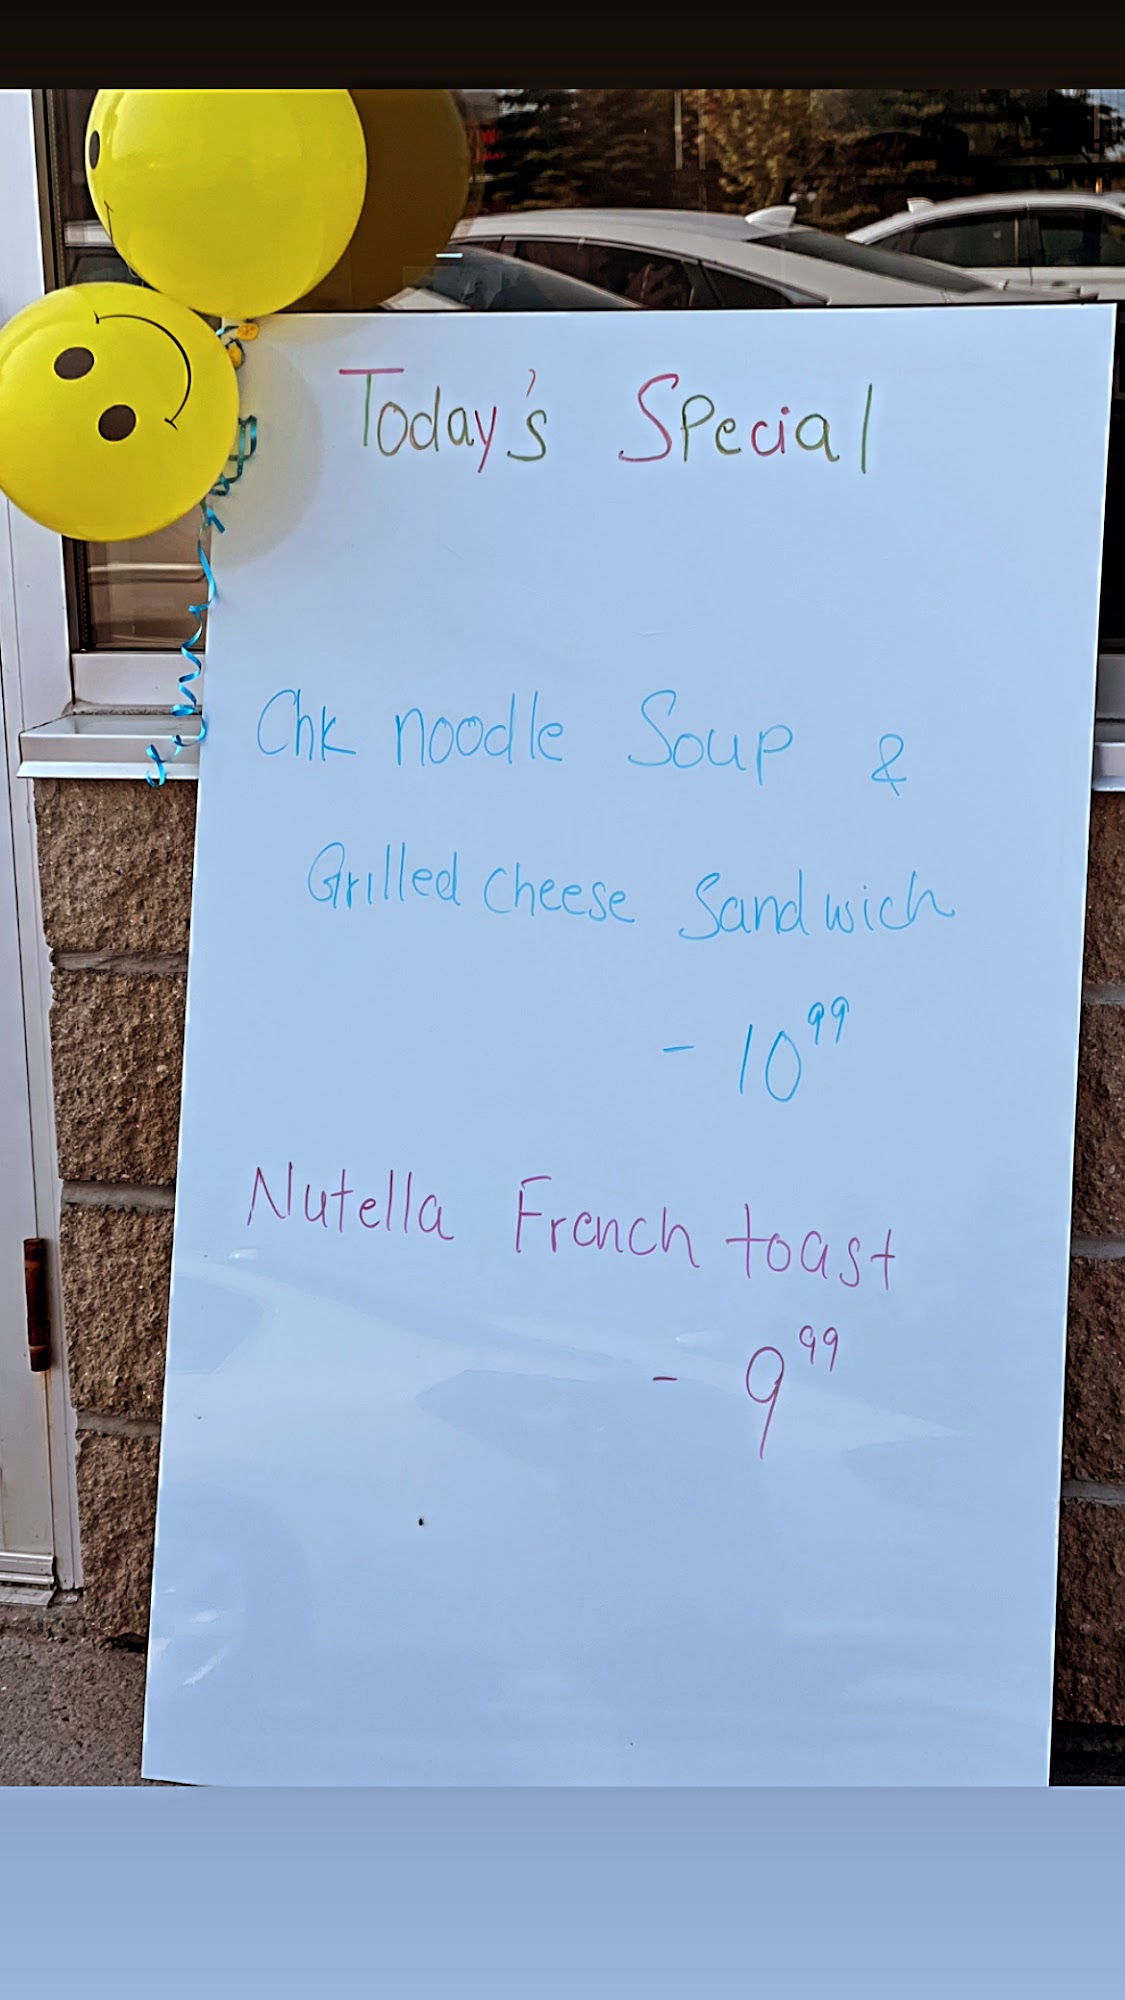 Today's Special
Chk noodle Soup &
Grilled cheese Sandwich
- 10⁹⁹
Nutella French toast
- 9⁹⁹